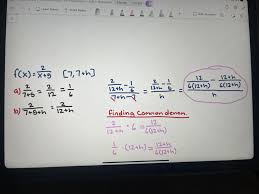 f(x) = 2/x+5 [7, 7+h]
a) 2/7+5 = 2/12 = 1/6
b) 2/7+h+5 = 2/12+h
2/12+h - 1/6 / 7+h-7 = 2/12+h - 1/6 / h = 12/6(12+h) - 12+h/6(12+h) / h
Finding Common denom.
2/12+h · 6 = 12/6(12+h)
1/6 · (12+h) = 12+h/6(12+h)